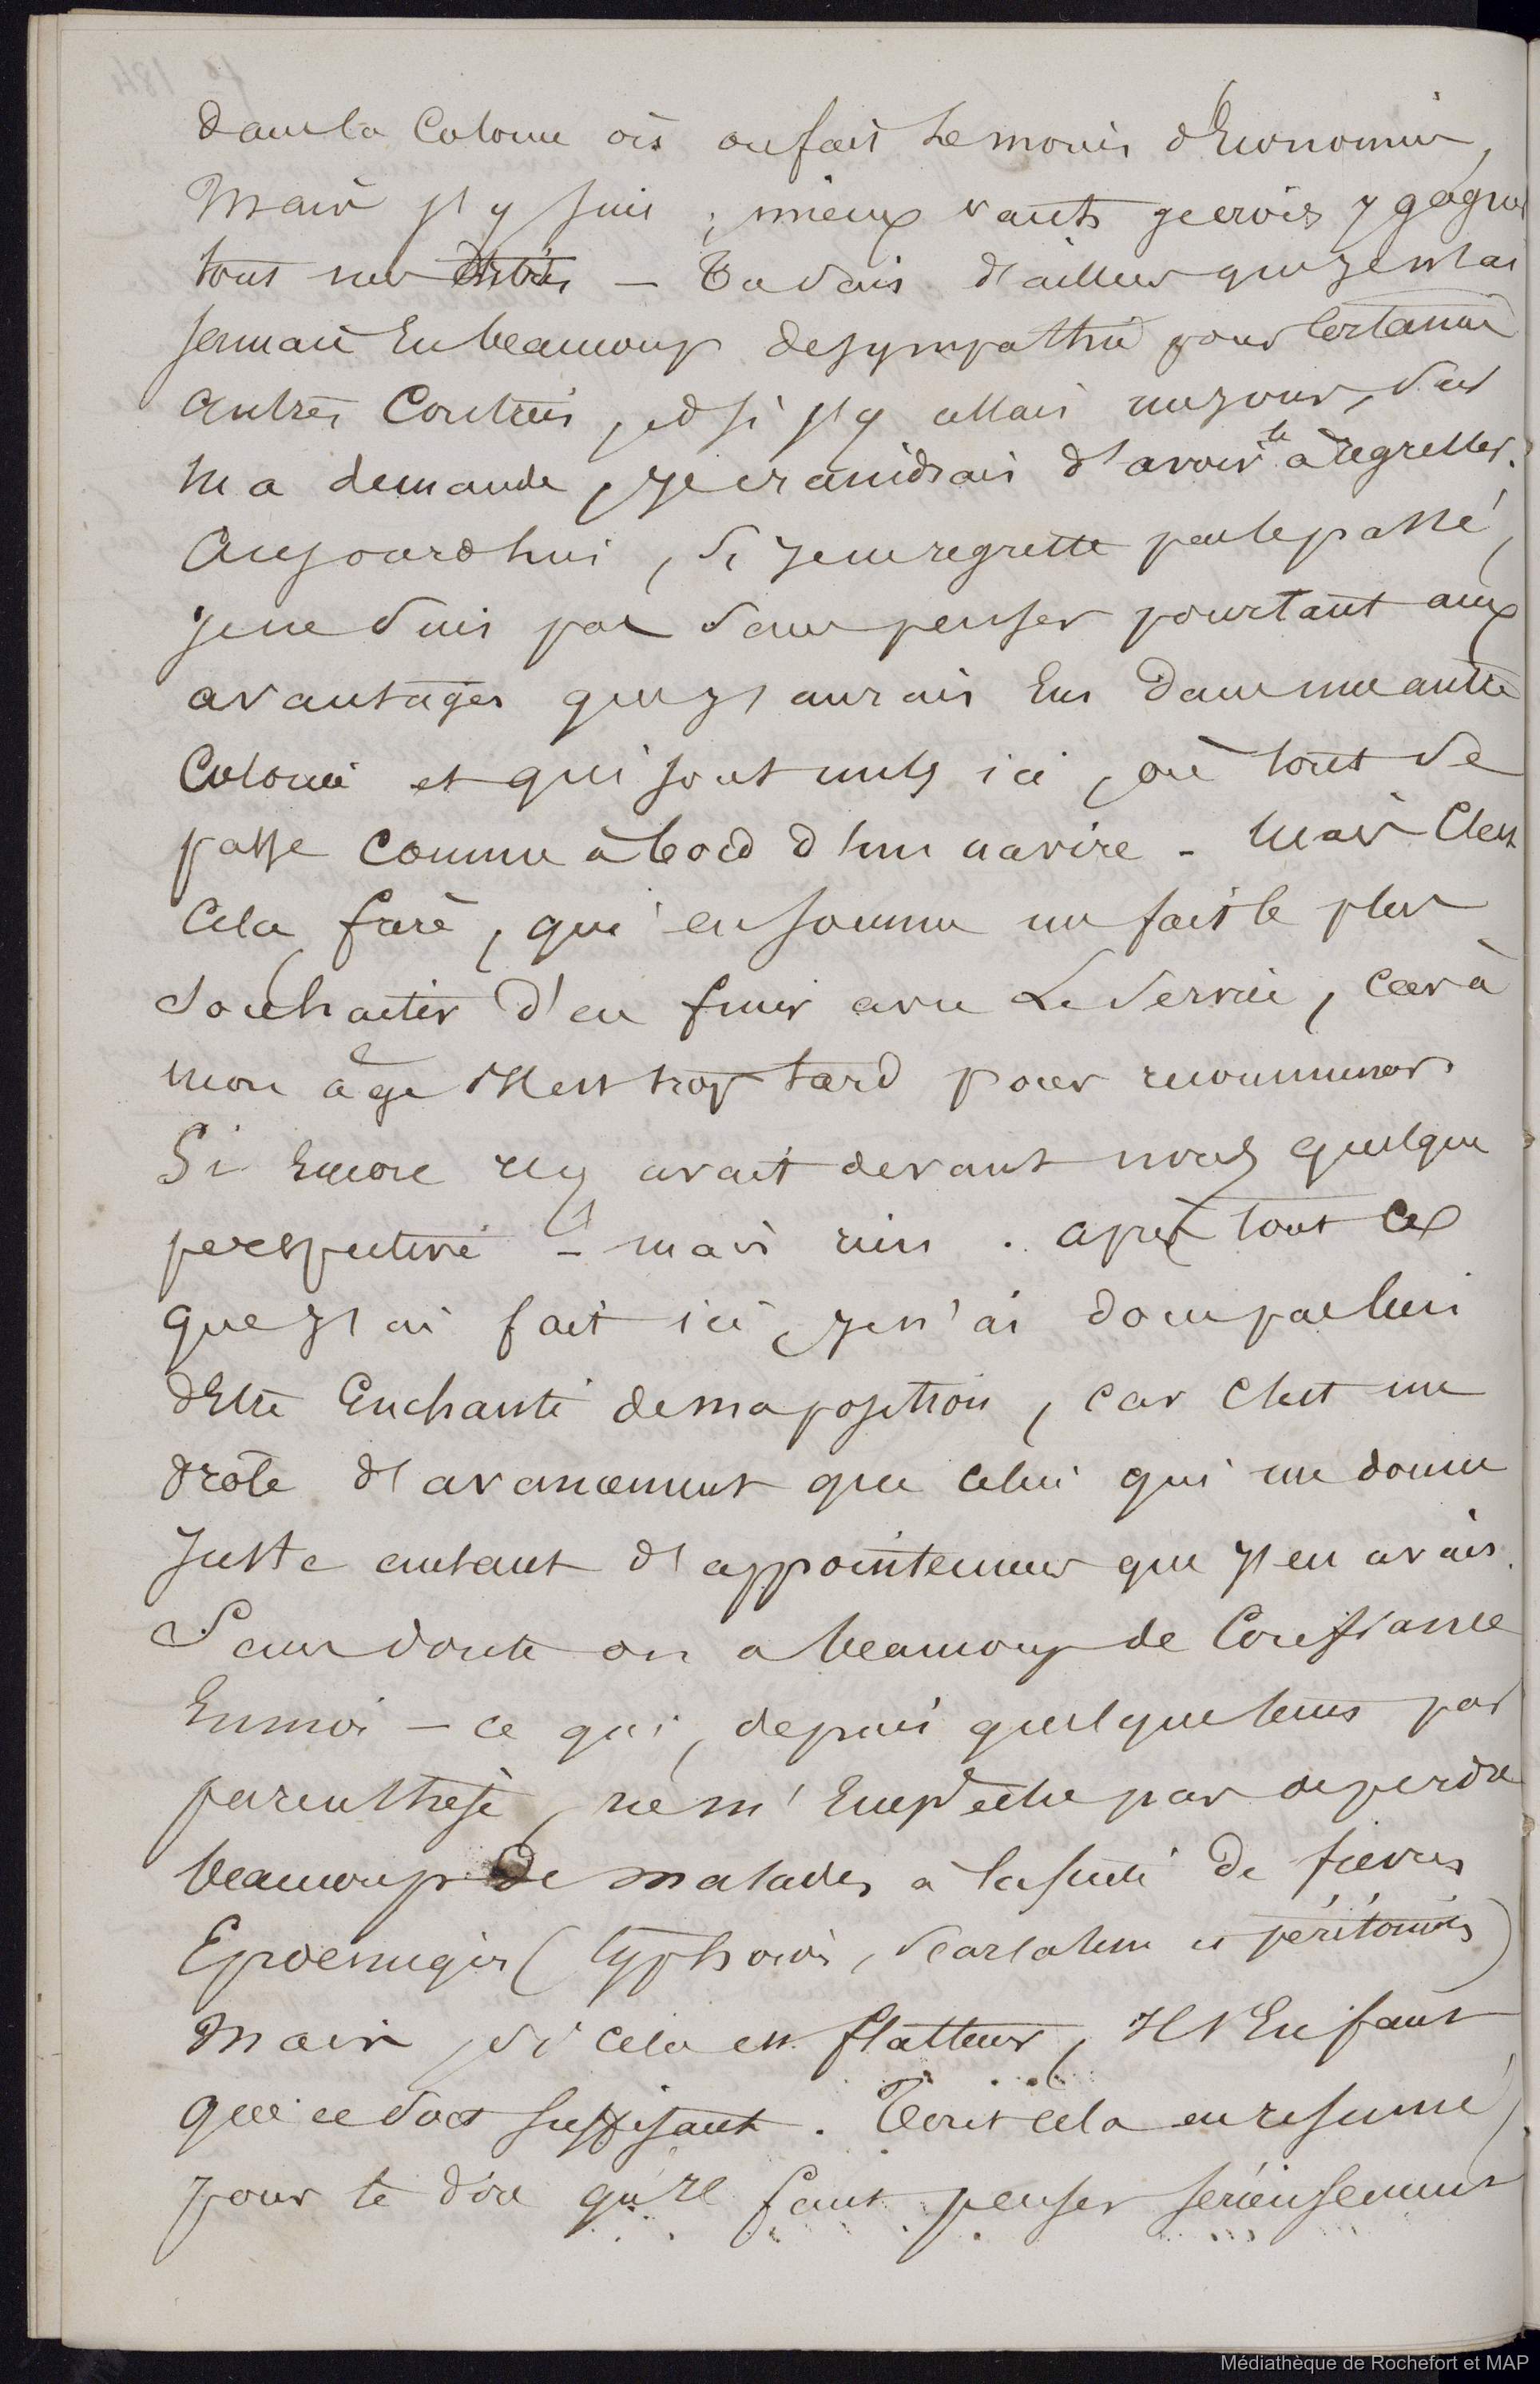 dans la Colonie où on fait le moins d'Economies,
Mais j'y suis, mieux vaut je crois y gagner
tout mes - Tu sais d'ailleurs que je n'ai
jamais Eu beaucoup de sympathie pour Certaines
autres Contrées, et si j'y allais un jour, sur
ma demande, je craindrais d'avoir à le regretter.
Aujourdhui, si je ne regrette pas le passé,
je ne suis pas sans penser pourtant aux
avantages que j'aurais Eus dans une autre
Colonie et qui sont nuls ici, où tout se
passe comme à bord d'un navire - Mais C'est
Cela, qui en somme me fait le plus
souhaiter d'en finir avec Le Service, car à
mon âge Il est trop tard pour recommencer.
Si Encore il y avait devant nous quelque
perspective - mais rien. après tout ce
que j'ai fait ici, je n'ai donc pas lieu
d'Etre Enchanté de ma position, car C'est un
drôle d'avancement que celui qui me donne
Juste autant d'appointements que j'en avais.
Sans doute on a beaucoup de Confiance
En moi - ce qui, depuis quelque tems par
parenthèse, ne m'Empêche pas de perdre
beaucoup de malades à la suite de fièvres
Epidemiques (typhoïdes, scarlatine et péritonites)
Mais, si cela est flatteur, Il s'En faut
que ce soit suffisant. Tout cela en résumé,
pour te dire qu'Il faut penser sérieusement
Médiathèque de Rochefort et MAP